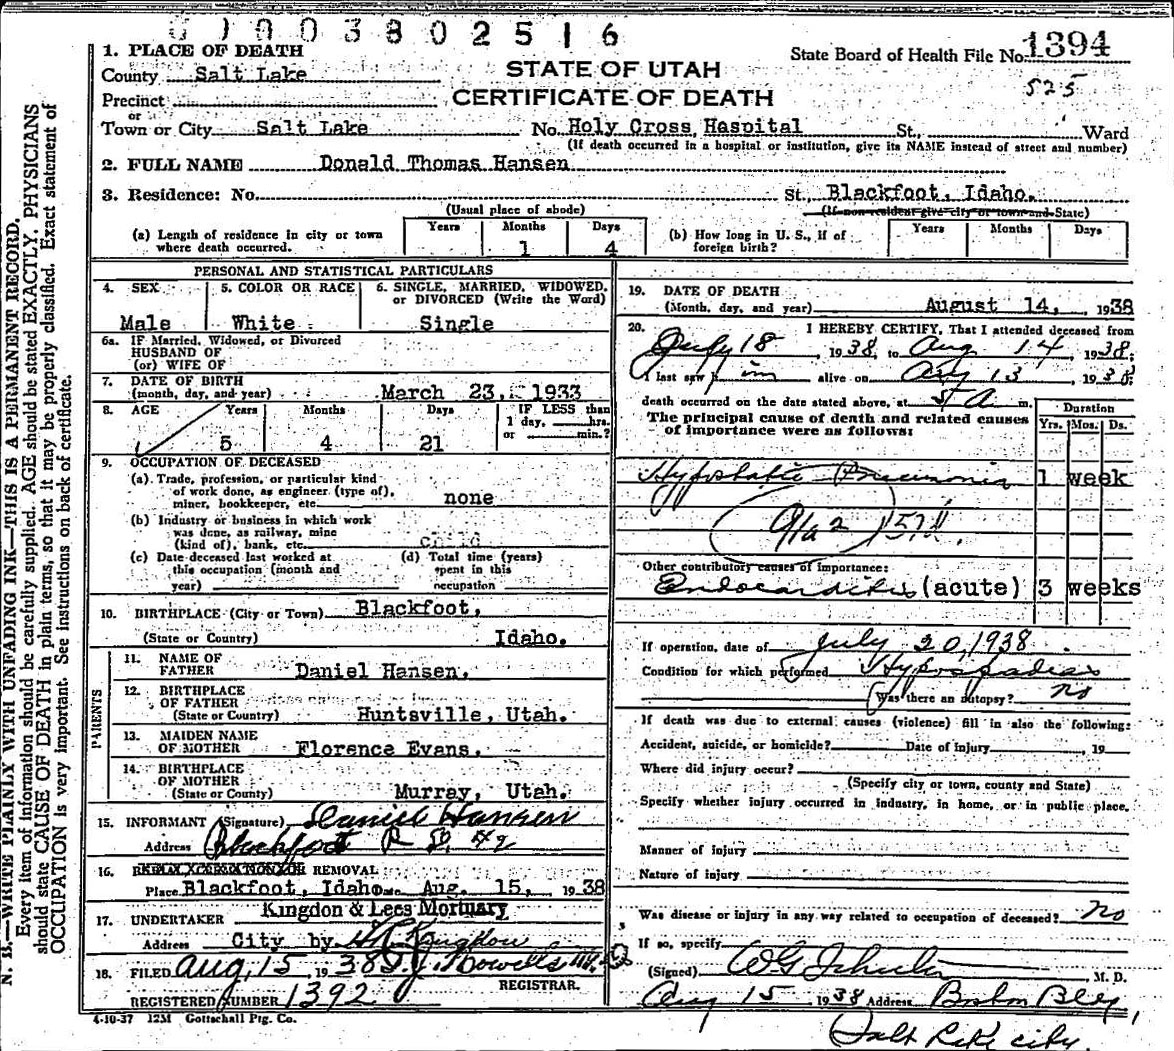 0 0 0 3 8 0 2 5 1 6
State Board of Health File No. 1394
525
STATE OF UTAH
CERTIFICATE OF DEATH
1. PLACE OF DEATH
County Salt Lake
Precinct
or
Town or City Salt Lake No. Holy Cross Haspital St., Ward
(If death occurred in a hospital or institution, give its NAME instead of street and number)
2. FULL NAME Donald Thomas Hansen
3. Residence: No. St. Blackfoot, Idaho.
(Usual place of abode) (If non-resident give city or town and State)
(a) Length of residence in city or town where death occurred. Years Months 1 Days 4
(b) How long in U. S., if of foreign birth? Years Months Days
PERSONAL AND STATISTICAL PARTICULARS
4. SEX Male
5. COLOR OR RACE White
6. SINGLE, MARRIED, WIDOWED, or DIVORCED (Write the Word) Single
6a. IF Married, Widowed, or Divorced
HUSBAND OF
(or) WIFE OF
7. DATE OF BIRTH
(month, day, and year) March 23, 1933
8. AGE Years 5 Months 4 Days 21 IF LESS than 1 day, hrs. or min.?
9. OCCUPATION OF DECEASED
(a) Trade, profession, or particular kind
of work done, as engineer (type of),
miner, bookkeeper, etc. none
(b) Industry or business in which work
was done, as railway, mine
(kind of), bank, etc. child
(c) Date deceased last worked at
this occupation (month and
year)
(d) Total time (years)
spent in this
occupation
10. BIRTHPLACE (City or Town) Blackfoot,
(State or Country) Idaho.
PARENTS
11. NAME OF
FATHER Daniel Hansen,
12. BIRTHPLACE
OF FATHER
(State or Country) Huntsville, Utah.
13. MAIDEN NAME
OF MOTHER Florence Evans,
14. BIRTHPLACE
OF MOTHER
(State or County) Murray, Utah.
15. INFORMANT (Signature) Daniel Hansen
Address Blackfoot R
16. REMOVAL
Place Blackfoot, Idaho Aug. 15, 1938
17. UNDERTAKER Kingdon & Lees Mortuary
Address City by Kingdon
18. FILED Aug, 15, 1938
REGISTRAR.
REGISTERED NUMBER 1392
4-10-37 12M Gottschall Ptg. Co.
19. DATE OF DEATH
(Month, day, and year) August 14, 1938
20. I HEREBY CERTIFY, That I attended deceased from
July 18, 1938, to Aug 14, 1938;
I last saw him alive on Aug 13, 1938;
death occurred on the date stated above, at 5 A m.
The principal cause of death and related causes
of importance were as follows:
Duration
Yrs. Mos. Ds.
Hypostatic Pneumonia 1 week
Other contributory causes of importance:
Endocarditis (acute) 3 weeks
If operation, date of July 20, 1938
Condition for which performed Hypospadias
Was there an autopsy? no
If death was due to external causes (violence) fill in also the following:
Accident, suicide, or homicide? Date of injury , 19
Where did injury occur?
(Specify city or town, county and State)
Specify whether injury occurred in industry, in home, or in public place.
Manner of injury
Nature of injury
Was disease or injury in any way related to occupation of deceased? no
If so, specify
(Signed) M. D.
Aug 15 1938 Address Boston Bldg,
Salt Lake City.
N. B.—WRITE PLAINLY WITH UNFADING INK—THIS IS A PERMANENT RECORD.
Every item of information should be carefully supplied. AGE should be stated EXACTLY. PHYSICIANS
should state CAUSE OF DEATH in plain terms, so that it may be properly classified. Exact statement of
OCCUPATION is very important. See instructions on back of certificate.